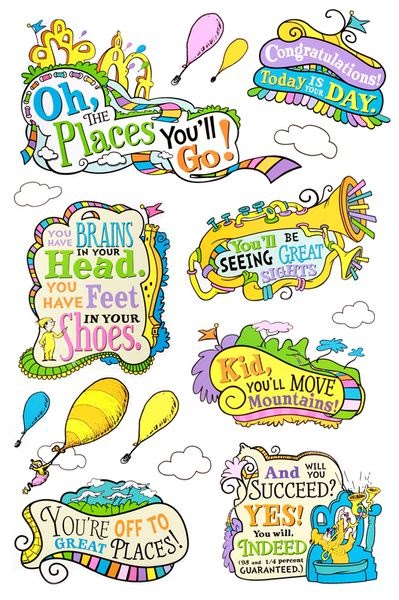 Oh,
THE
Places You'll
Go!
Congratulations!
Today IS YOUR DAY.
YOU HAVE BRAINS
IN YOUR
Head.
YOU HAVE Feet
IN YOUR
Shoes.
You'll BE
SEEING GREAT
SIGHTS
Kid,
YOU'LL MOVE
Mountains!
YOU'RE OFF TO
GREAT PLACES!
And WILL YOU
SUCCEED?
YES!
You will,
INDEED
(98 and 3/4 percent
GUARANTEED.)